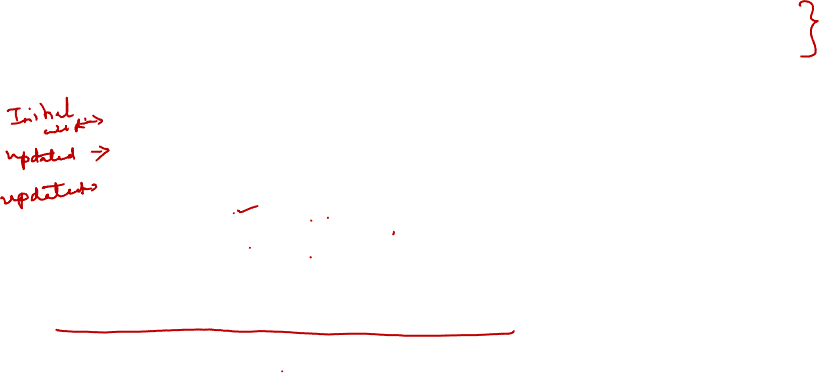 }
Initial
updated →
updated →